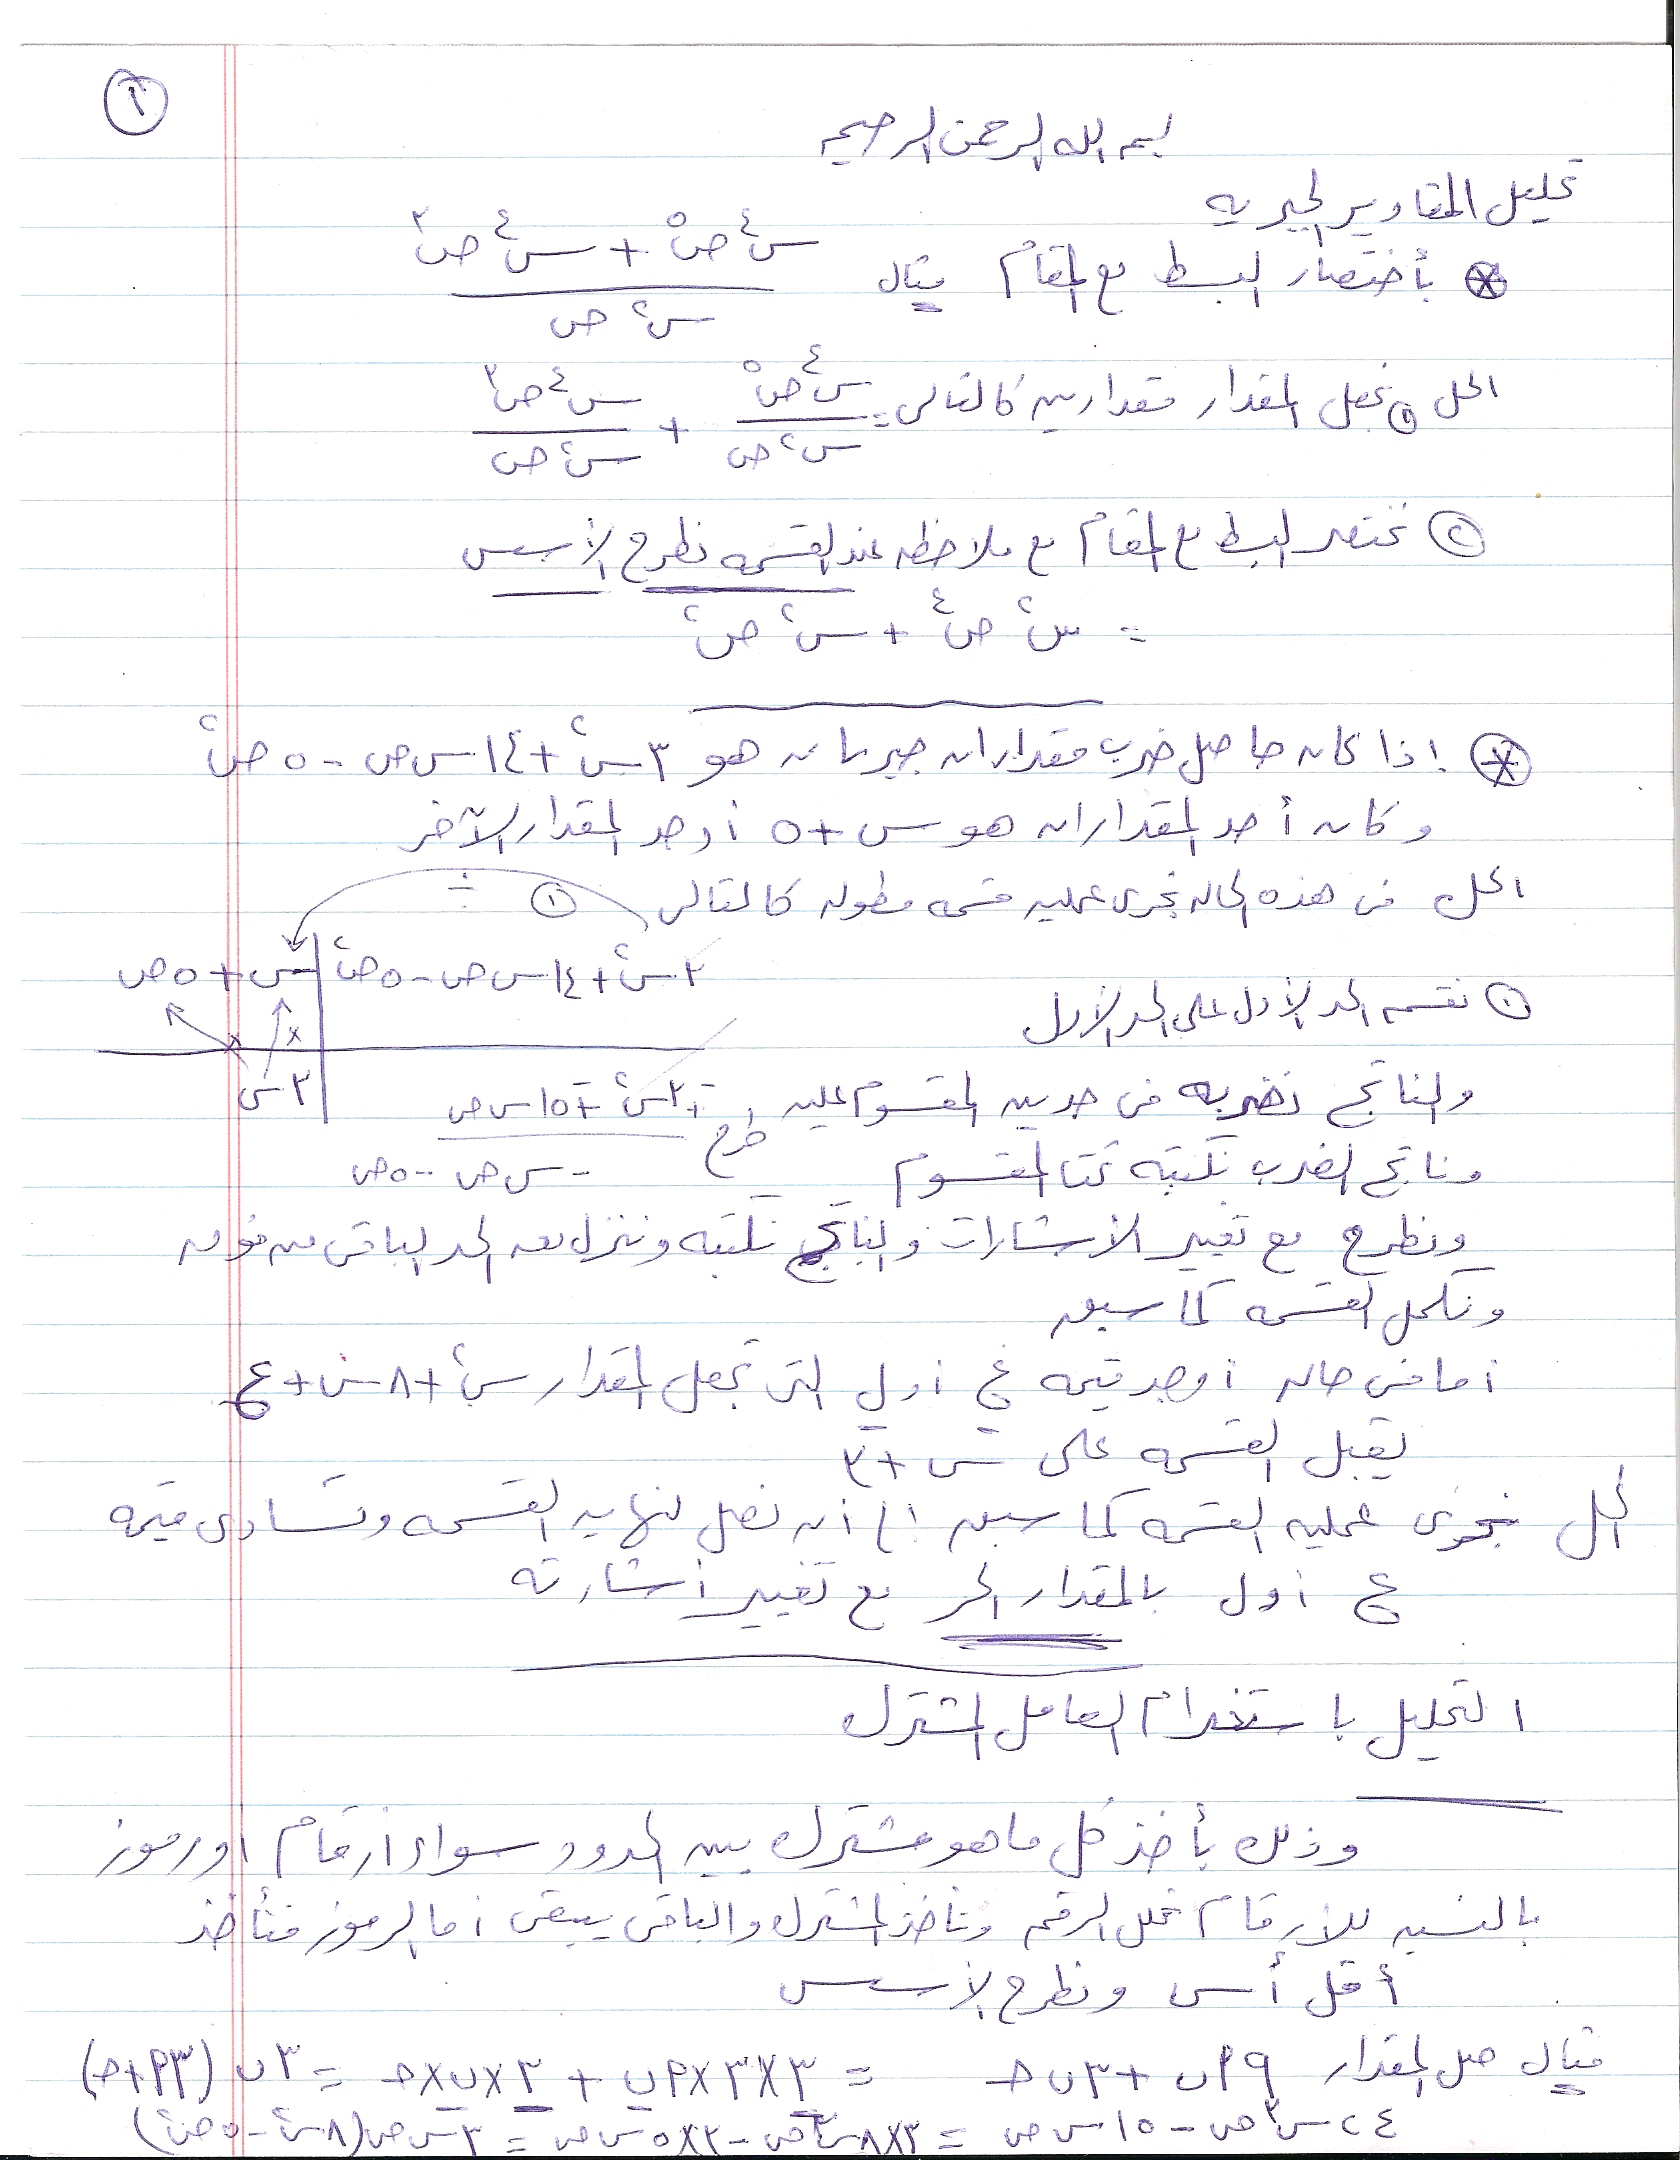 ١
بسم الله الرحمن الرحيم
تحليل المقادير الجبريه
* بأختصار البسط مع المقام مثال (س٤ ص٥ + س٤ ص٣) / (س٢ ص)
الحل ١ نجعل المقدار مقدارين كالتالى = (س٤ ص٥) / (س٢ ص) + (س٤ ص٣) / (س٢ ص)
٢ نختصر البسط مع المقام مع ملاحظه عند القسمه نطرح الأسس
= س٢ ص٤ + س٢ ص٢
* إذا كان حاصل ضرب مقداران جبريان هو ٣س٢ + ١٤ س ص - ٥ ص٢
وكان أحد المقداران هو س + ٥ أوجد المقدار الآخر
الحل فى هذه الحاله نجرى عمليه قسمه مطوله كالتالى ١ ÷
٣س٢ + ١٤ س ص - ٥ص٢ | س + ٥ص
١ نقسم الحد الأول على الحد الأول
٣س
والناتج نضربه فى حدين المقسوم عليه ٣س٢ + ١٥ س ص
وناتج الضرب نكتبه تحت المقسوم طرح - س ص - ٥ص
ونطرح مع تغيير الأشارات والناتج نكتبه وننزل معه الحد الباقى من فوقه
ونكمل القسمه كما سبق
أما فى حاله أوجد قيمه ع أو ل التى تجعل المقدار س٢ + ٨س + ع
يقبل القسمه على س + ٣
الحل نجرى عمليه القسمه كما سبق إلى أن نصل لنهايه القسمه وتساوى قيمه
ع أو ل بالمقدار الحر مع تغيير أشارته
التحليل باستخدام العامل المشترك
وذلك بأخذ كل ما هو مشترك بين الحدود سواء أرقام او رموز
بالنسبه للأرقام نحلل الرقم ونأخذ المشترك والباقى يبقى أما الرموز فنأخذ
أقل أس ونطرح الأسس
مثال حلل المقدار ٩ أ ب + ٣ ب حـ = ٣×٣×أ ب + ٣×ب×حـ = ٣ ب (٣أ + حـ)
٢٤ س٣ ص - ١٥ س ص = ٣×٨ س٣ ص - ٣×٥ س ص = ٣ س ص (٨س٢ - ٥ص٢)